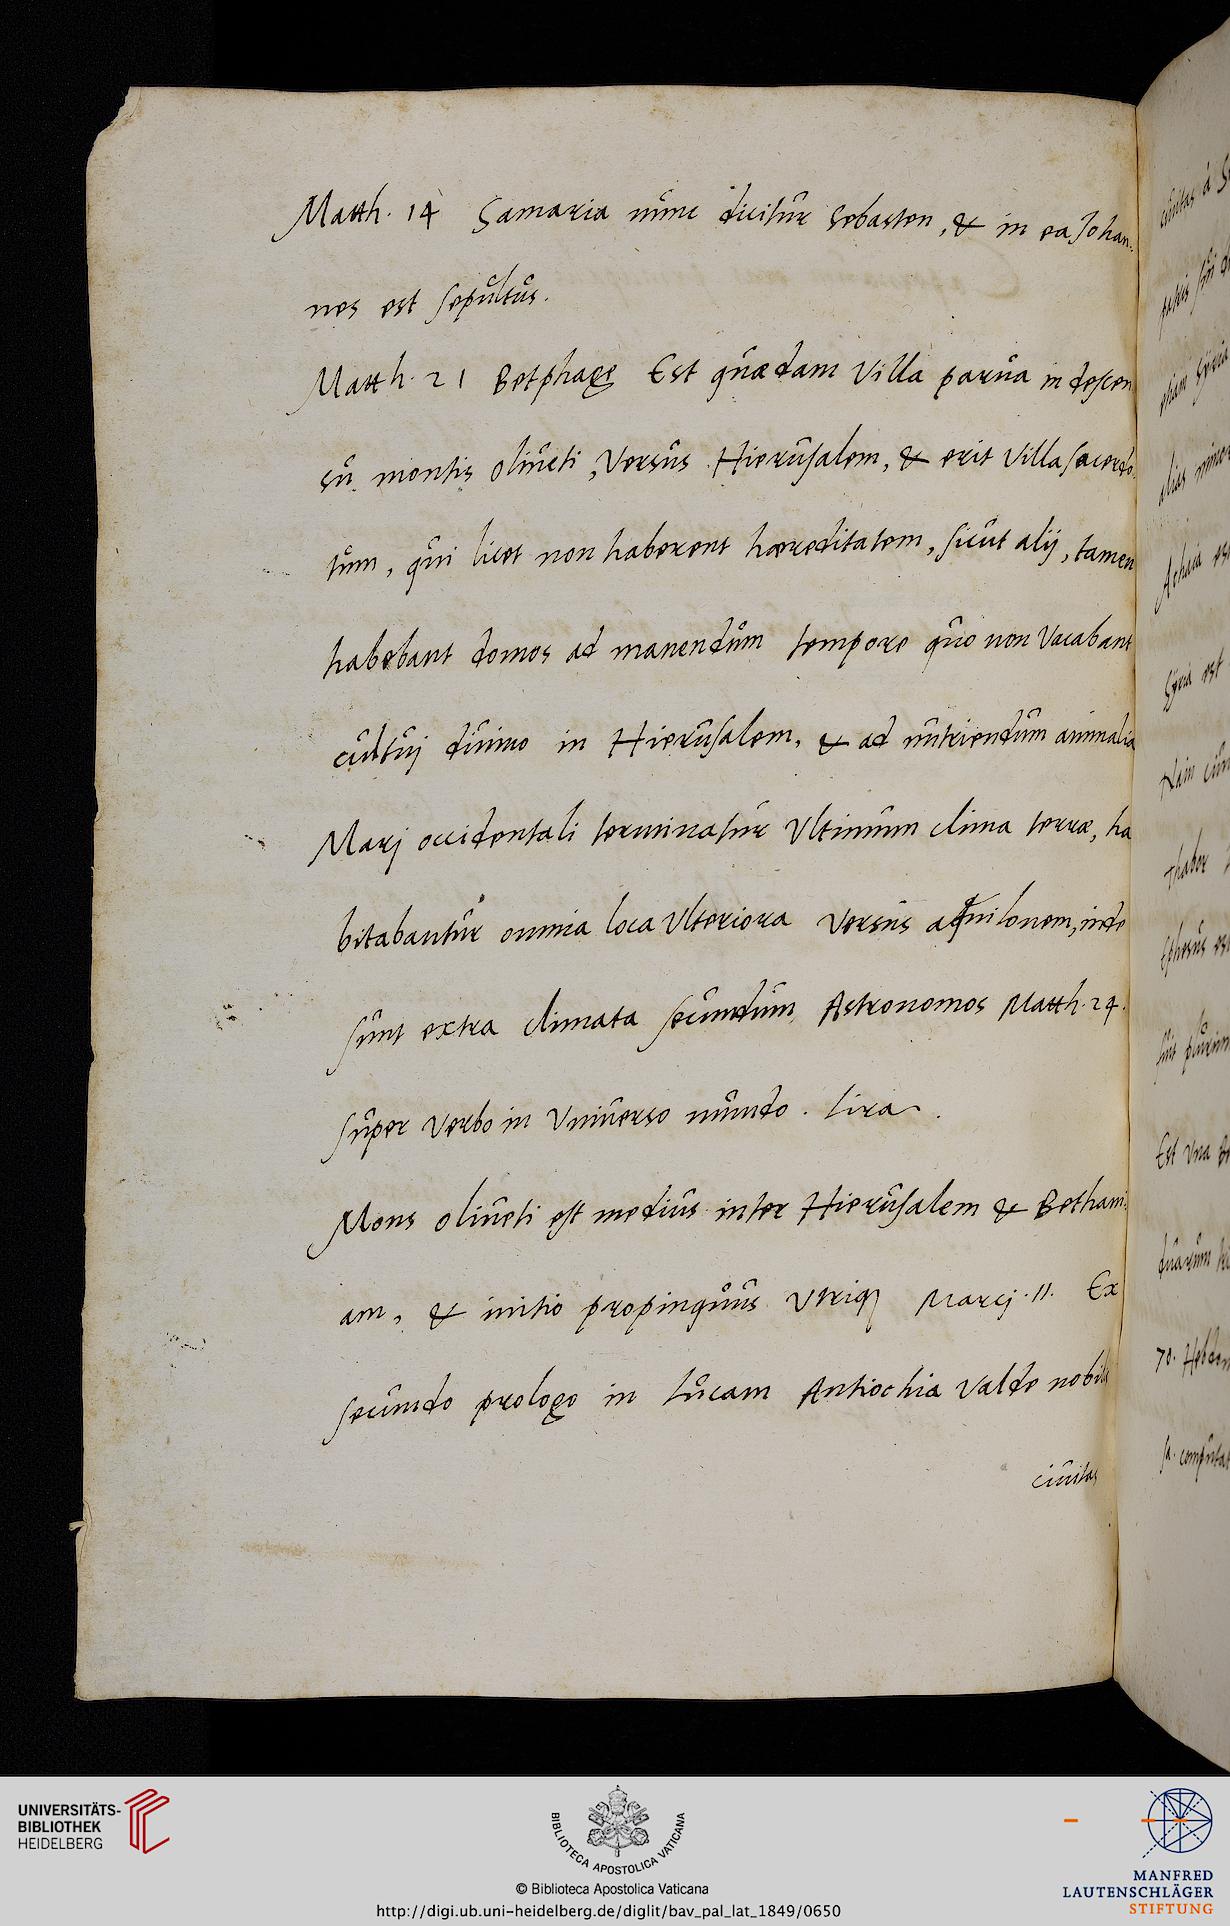 Matth. 14 Samaria nunc dicitur Sebasten, & in ea Johan-
nes est sepultus.
Matth. 21 Betphage Est quædam Villa parua in descen
su montis oliueti, Versus Hierusalem, & erit Villa sacerdo
tum, qui licet non haberent hæreditatem, sicut alij, tamen
habebant domos ad manendum tempore quo non Vacabant
cultuj diuino in Hierusalem, & ad nutriendum animalia
Marj occidentali terminatur Vltimum clima terræ, ha
bitabantur omnia loca Vlteriora Versus aquilonem, inde
sunt extra climata secundum Astronomos Matth. 24.
super Verbo in Vniuerso mundo. Lira.
Mons oliueti est medius inter Hierusalem & Bethani-
am, & initio propinquus Vtriq Marcj. 11. Ex
secundo prologo in Lucam Antiochia Valde nobilis
ciuitas
ciuitas a
patris sui
etiam Syria
alias minor
Achaia
Syria est
thabor
Ephesus
Est Vna
duarum
70. Hebdom
computat
UNIVERSITÄTS-
BIBLIOTHEK
HEIDELBERG
BIBLIOTECA APOSTOLICA VATICANA
© Biblioteca Apostolica Vaticana
http://digi.ub.uni-heidelberg.de/diglit/bav_pal_lat_1849/0650
MANFRED
LAUTENSCHLÄGER
STIFTUNG